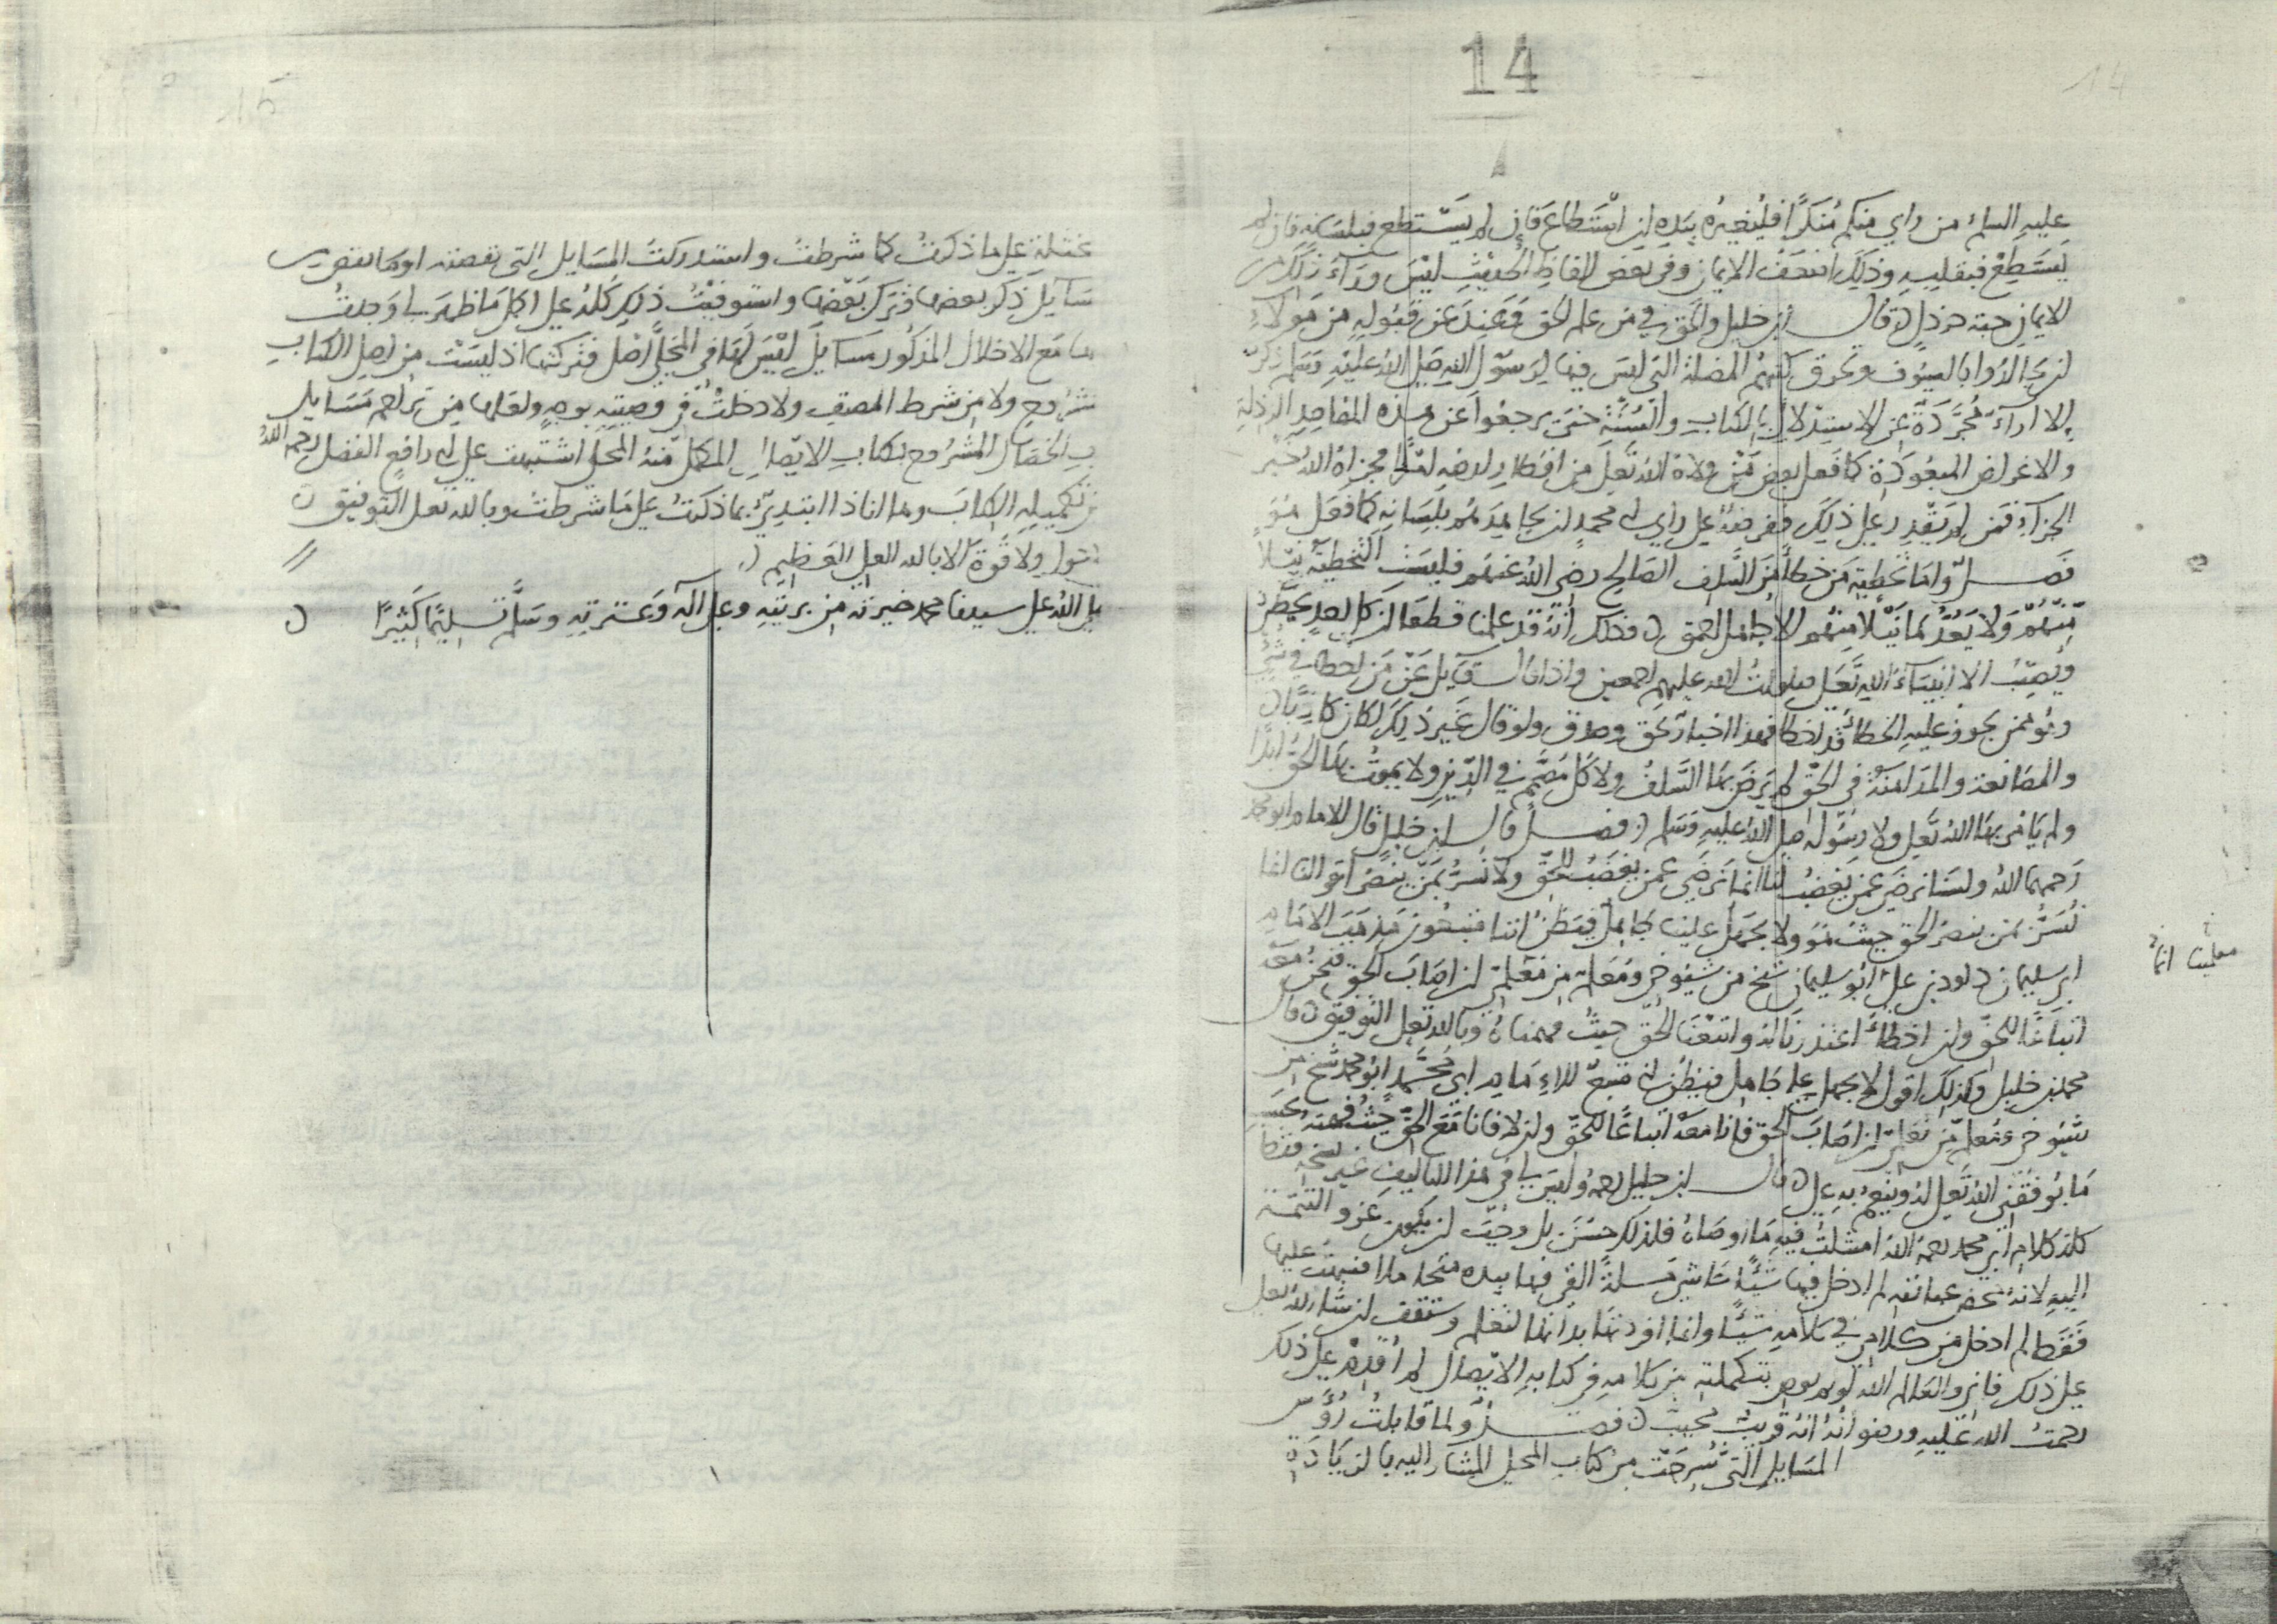 14
14
عليه السلم من راي منكم مُنكرًا فليُغيره بيَدِه ان اسْتَطاعَ فإن لم يَسْتطع فبلسَانه فان لم
يَسْتَطِعْ فبقلبِهِ وذلِكَ اضعَفُ الايمان وفي بعض الفاظ الحديْثِ ليْسَ ورَآءَ ذلكَ من
الايمانِ حبّة خردلٍ قال ابن خليل والحق في من علم الحق فعَنِدَ عَن قبُولِه من هَولاءِ
ان يجالدوا بالسيُوف وتحرق كتبهم المضلة التي ليسَ فيها لرسُول اللهِ صَلى اللهُ عليْهِ وَسَلم ذكرٌ
الا ارآءً مُجَرَّدَةً عن الاستِدْلال بالكتابِ والسُّنَّة حتى يرجعُوا عَن هذه المقاصِدِ الرذلة
والاغراض كما فعل بعض مَنْ ولاهُ اللهُ تعلى من اقطارِ ارضِهِ امرًا فجزاهُ اللهُ خيْر
الجزآءِ فمَن لم يَقدِر على ذلِكَ ففرضهُ على راي ابي محمدٍ ان يجاهِدَهُم بلِسَانِهِ كما فعَل هُوَ
فصــل وَامَا تخطِيَة مَن خطأ مِنَ السَّلفِ الصَالحِ رضى اللهُ عنهُم فليسَت التخطيَة نيْلاً
مِنْهُمْ وَلا يَعُدّهَا نيْلا منهُم الا جاهل احمق فذلك انهُ قد علمنا قطعًا ان كل احدٍ يخطِئُ
ويُصِيْبُ الا انبيَآءَ اللهِ تعَلى صلوات الله عليهم اجمعين واذا قال قايل عَن مَن اخطا في شيْءٍ
وهُو ممن يجوز عليهِ الخطا قد اخطا فهذا اخبار بحق وصِدق ولو قال غير ذلكَ لكان كاذبًا
والمصَانعة والمدَاهنَة في الحَقّ لم يَرضَ بهَا السَّلفُ ولا كل في الدِّين ولا بها الحَقُّ ابدًا
ولم يَامُر بهَا اللهُ تَعلى ولا رسُوله صلى اللهُ عليهِ وَسَلم فصــل قال ابن خليل قال الامام ابو محمد
رَحمهما اللهُ ولسْنا نرضَى عمن يَغضبُ لنا انما نَرضَى عمن يغضَبُ للحَقّ ولا نُسَرُّ بمَن يَنصُر اقوالنا انما
نُسَرُّ بمَن ينصُر الحق حيثُ هُوَ ولا يجهَل علينا جاهلٌ فيَظنُّ اننا متبعُون مَذهَبَ الامَامِ
ابي سليمان داود بن علي انما ابو سليمان شيخ من شيُوخنا ومُعَلم من مُعَلمينا ان اصَابَ الحق فنحنُ مَعَهُ
اتباعًا للحَقّ وان اخطا اعتذرنا له واتبعْنا الحَقّ حيثُ فهمناهُ وبالله تعلى التَّوفيق قال
محمد بن خليل وكذلك اقول لا يجهل علي جاهل فيظن اني متبعٌ للامَامِ ابي مُحَمَّد ابُو محمد شيخ من
شيُوخي ومُعلم من معلميْنا ان اصَابَ الحق فانا مَعَهُ اتباعًا للحقّ وان لا فانا مَعَ الحَقّ حيثُ فهمتُهُ بحَسَبِ
مَا يُوفقُني اللهُ تعَلى لهُ ويُنعِم بهِ علي قال ابن خليل رحمه وليسَ لي في هذا التاليفِ غير نسْخِهِ فقط
كله كلام ابي محمد رحمهُ اللهُ امتثلتُ فيهِ مَا اوصَاهُ فلذلكَ حسُنَ بل وجَبَ ان يكون عَزو التتِمّة
اليهِ لانهُ محض لم ادخل فيها شيئًا حاشَى مَسلةً القى فيها بيده
فقَط لم ادخل من كلامي في كلامِهِ شيئًا وانما افردتها بذاتها لتعْلم وستقف ان شاءَ الله تعلى
على ذلك فاني والعَالم الله لو لم يوص بتكملتِهِ من كلامِهِ في كتابهِ الايْصَال لم اُقدِم على ذلك
رحمَتُ الله عليهِ ورضوَانُهُ انهُ قريْبٌ مجيْبٌ فصــلٌ ولما قابلتُ رُؤُس
المسَايل التي شُرِحَتْ من كتاب المحلى المشَار اليهِ بالزيَادَةِ
معلمينا انما
15
على ما ذكرتُ كما شرطتُ واستدركتُ المسَايل التي نقصته اوها بعض
مسَايل ذكر بعضها وترك بَعْضها واستوفيْتُ ذلِكَ كلهُ على اكمل مَا ظهَرَ لي وَجدتُ
مَعَ الاخلال المذكُور مسَايلَ ليْسَ لهَا في المجَلَّى اصْل فتركتها اذ ليسَتْ من اصْلِ الكتابِ
المشرُوحِ ولا مِن شرط المصَنِفِ ولا دخلتْ في وصِيّتِهِ بوجهٍ ولعَلها مِن تراجم مَسَايل
كتابِ الخصَالِ المشرُوح بكتابِ الايْصَالِ المكمّل منهُ المحلى اشتبهت على ابي رافعٍ الفضل رحمهُ اللهُ
في تكميلهِ الكتابَ وها انا ذا ابتدِئ بما ذكرتُ على مَا شرطتُ وبالله تعلى التوفيق
لا حَول ولا قُوّةَ الا بالله العلي العَظِيمِ
صلى اللهُ على سيدنا محمد خيرته من بريتهِ وعلى آله وَعترتِهِ وَسَلَّم تسليمًا كَثيرًا